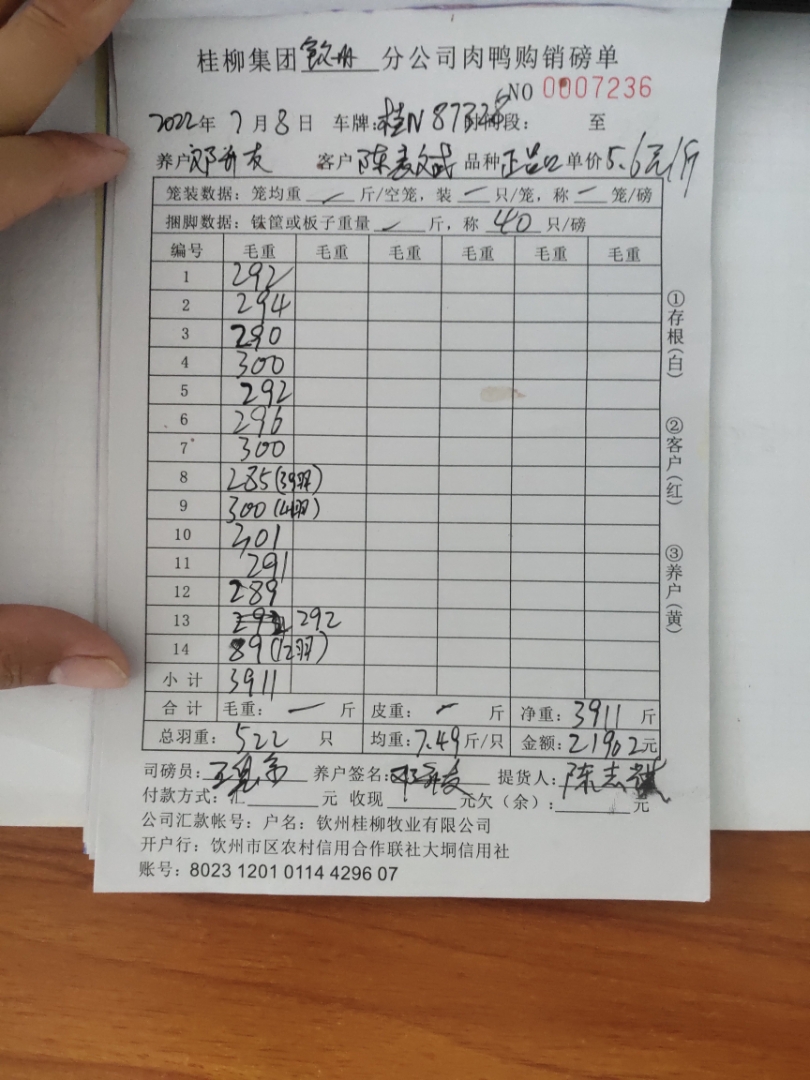 桂柳集团钦州分公司肉鸭购销磅单
NO 0007236
2022年7月8日 车牌:桂N 时间段: 至
养户 邓 友 客户 陈 品种 正品 单价 5.6元/斤
笼装数据:笼均重 / 斤/空笼,装 一 只/笼,称 一 笼/磅
捆脚数据:铁筐或板子重量 / 斤,称 40 只/磅
编号 毛重 毛重 毛重 毛重 毛重 毛重
1 292
2 294
3 290
4 300
5 292
6 296
7 300
8 285(39羽)
9 300(41羽)
10 301
11 291
12 289
13 292
14 89(12羽)
小计 3911
合计 毛重: 一 斤 皮重: 一 斤 净重: 3911 斤
总羽重: 522 只 均重: 7.49斤/只 金额: 21902元
司磅员: 王 养户签名: 邓 友 提货人: 陈志
付款方式:汇 元 收现 元欠(余): 元
公司汇款帐号:户名:钦州桂柳牧业有限公司
开户行:钦州市区农村信用合作联社大垌信用社
账号:8023 1201 0114 4296 07
①存根(白)
②客户(红)
③养户(黄)